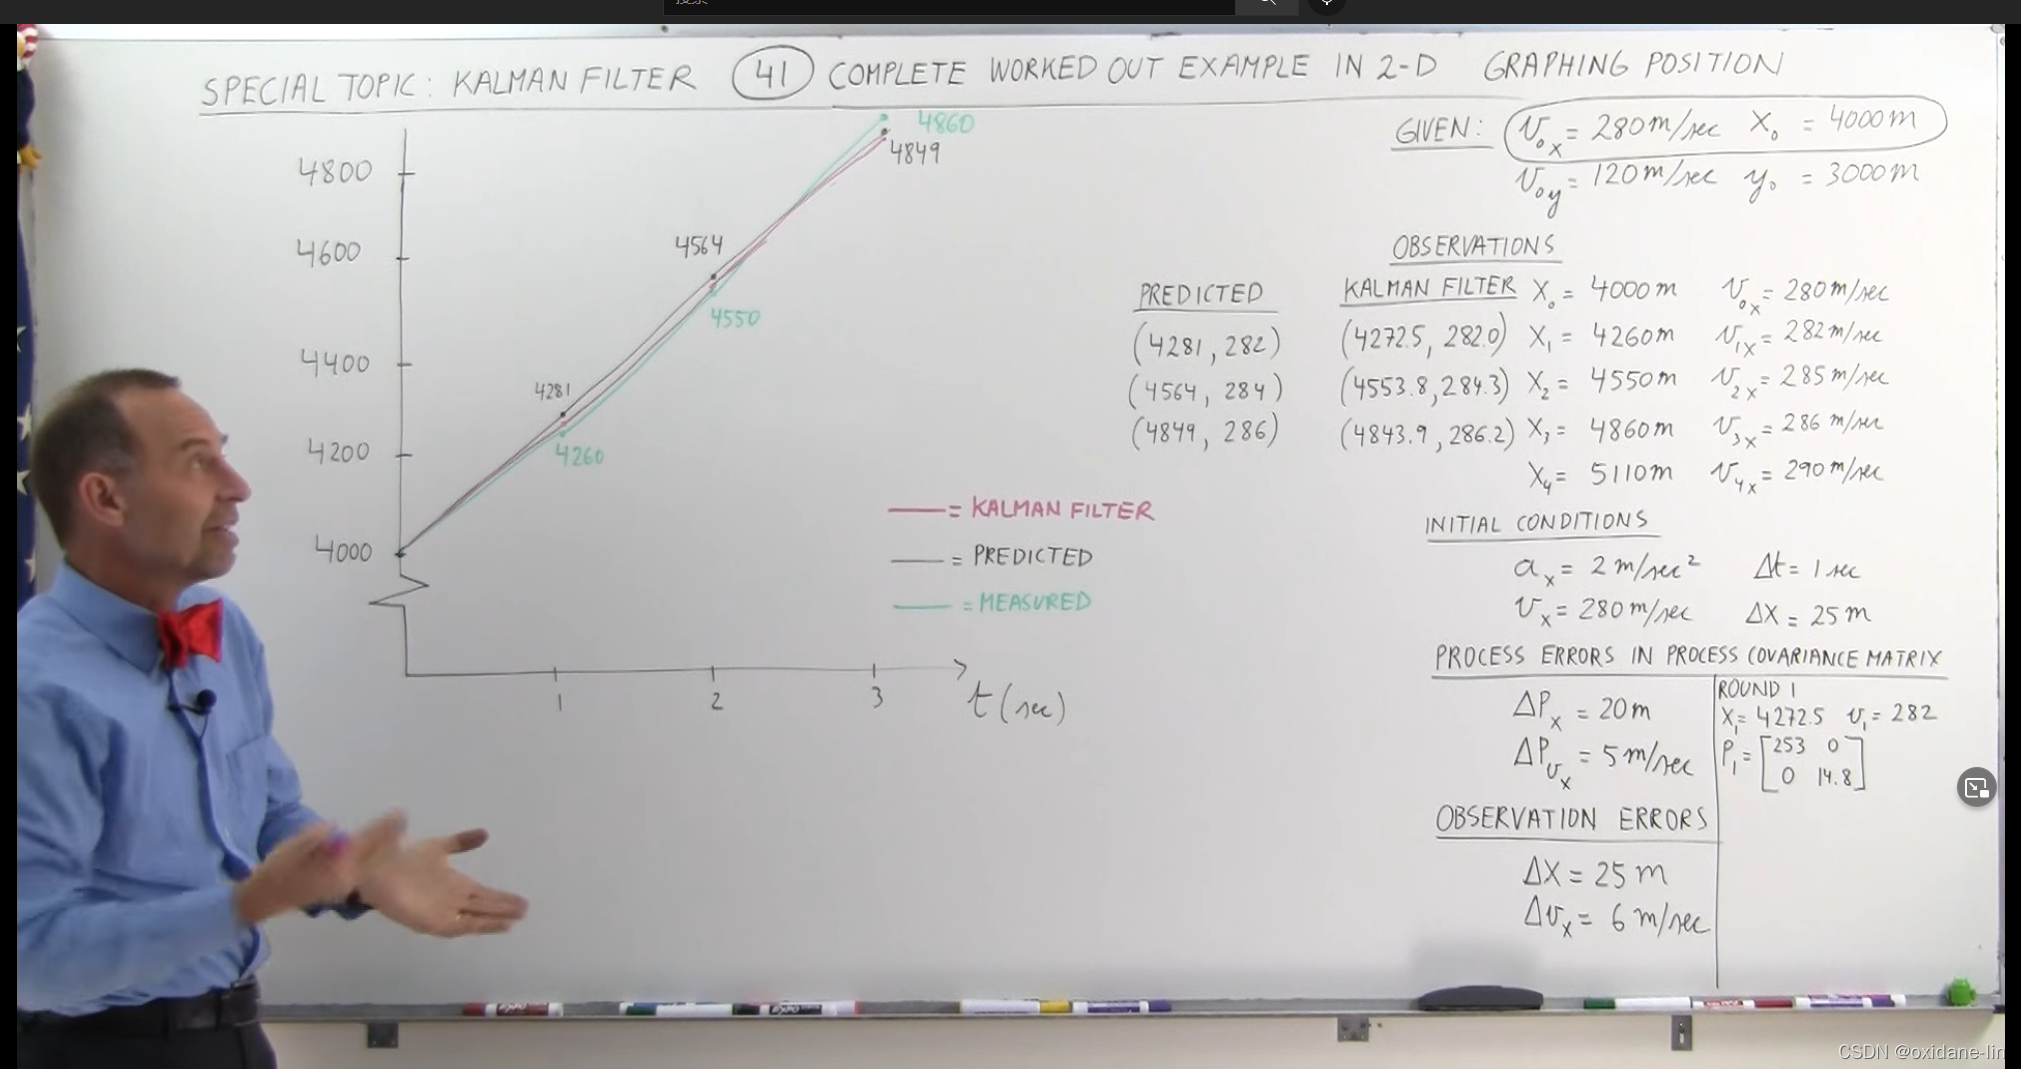 SPECIAL TOPIC: KALMAN FILTER 41 COMPLETE WORKED OUT EXAMPLE IN 2-D GRAPHING POSITION
GIVEN: v₀ₓ = 280 m/sec X₀ = 4000 m
v₀y = 120 m/sec y₀ = 3000 m
4800
4600
4400
4200
4000
4860
4849
4564
4550
4281
4260
1
2
3
t (sec)
= KALMAN FILTER
= PREDICTED
= MEASURED
OBSERVATIONS
PREDICTED KALMAN FILTER X₀ = 4000 m v₀ₓ = 280 m/sec
(4281, 282) (4272.5, 282.0) X₁ = 4260 m v₁ₓ = 282 m/sec
(4564, 284) (4553.8, 284.3) X₂ = 4550 m v₂ₓ = 285 m/sec
(4849, 286) (4843.9, 286.2) X₃ = 4860 m v₃ₓ = 286 m/sec
X₄ = 5110 m v₄ₓ = 290 m/sec
INITIAL CONDITIONS
aₓ = 2 m/sec² Δt = 1 sec
vₓ = 280 m/sec ΔX = 25 m
PROCESS ERRORS IN PROCESS COVARIANCE MATRIX
ΔPₓ = 20 m
ΔPᵥₓ = 5 m/sec
ROUND 1
X₁ = 4272.5 v₁ = 282
P₁ = [253 0
0 14.8]
OBSERVATION ERRORS
ΔX = 25 m
Δvₓ = 6 m/sec
CSDN @oxidane-lin